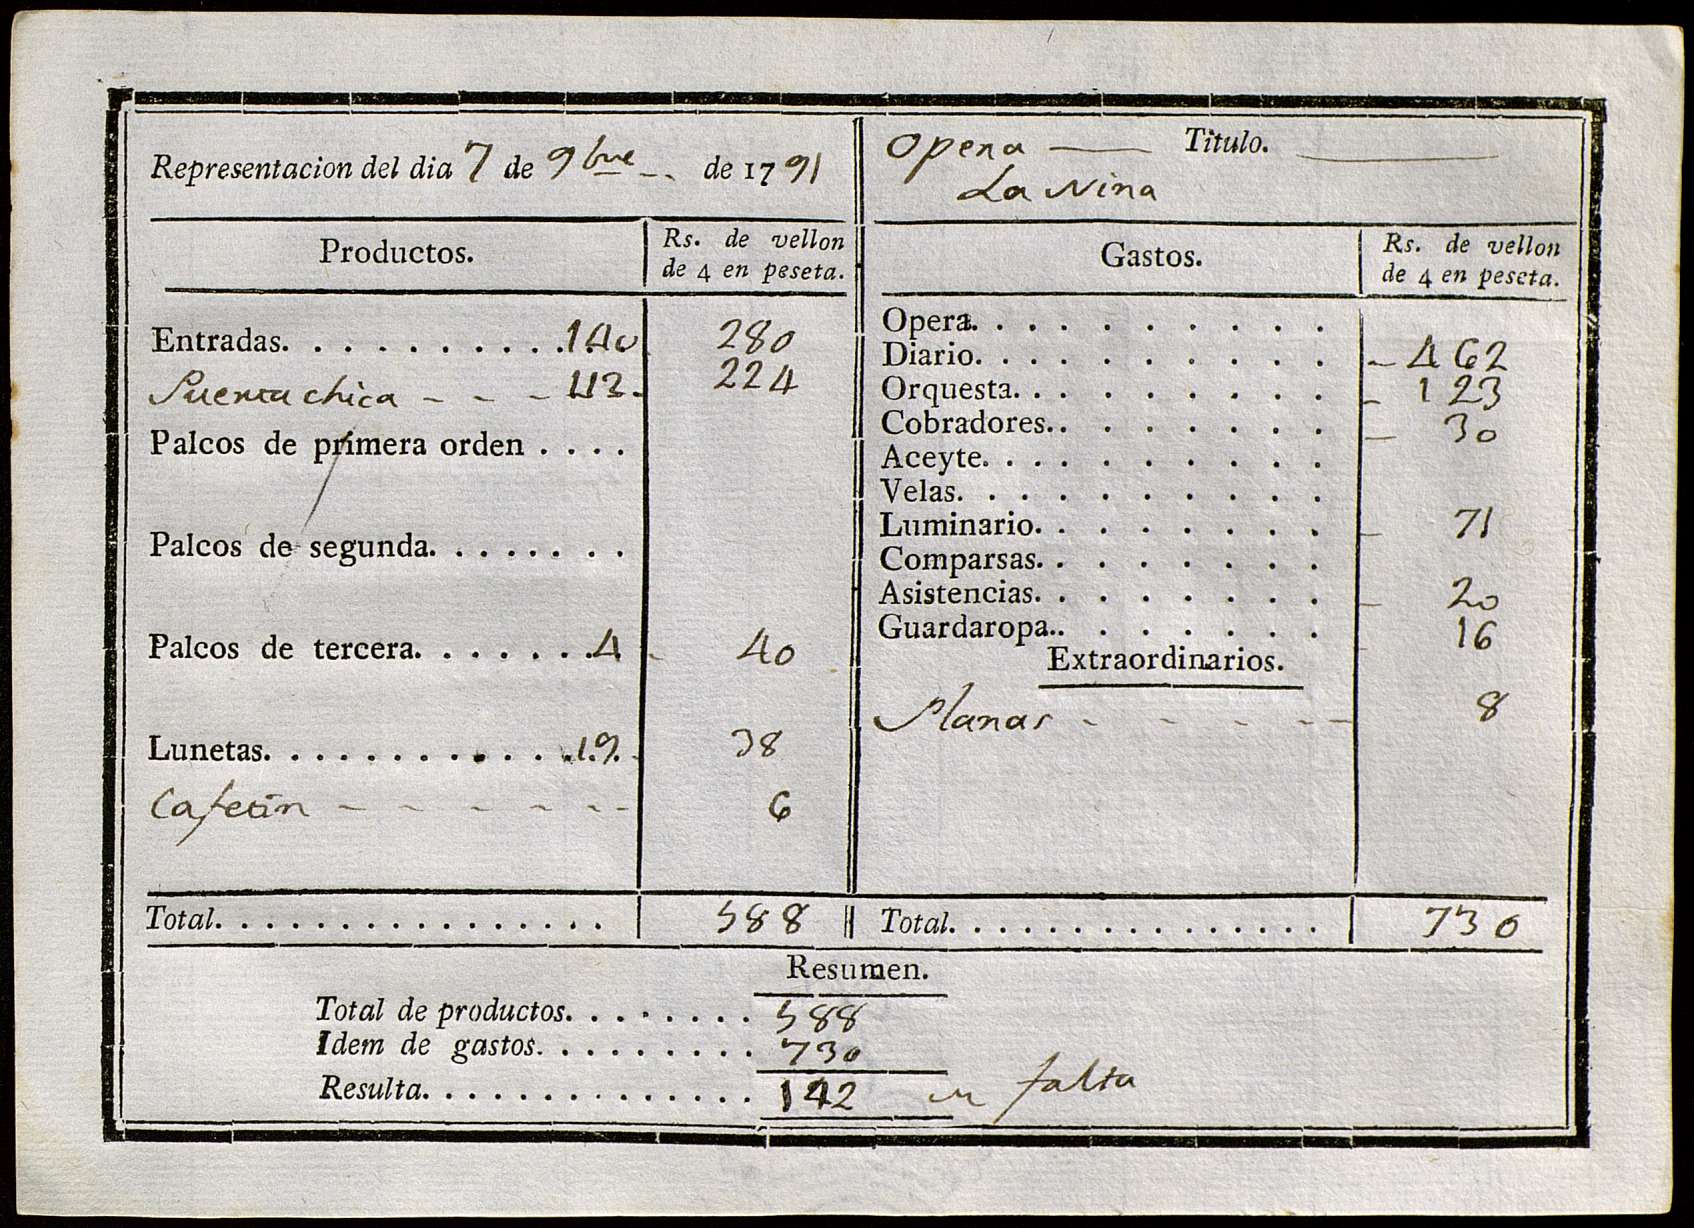 Representacion del dia 7 de 9bre de 1791
Opera Titulo.
La Nina
Productos. Rs. de vellon de 4 en peseta.
Entradas. 140 280
Puerta chica 112 224
Palcos de primera orden
Palcos de segunda.
Palcos de tercera. 4 40
Lunetas. 19 38
Cafetin 6
Total. 588
Gastos. Rs. de vellon de 4 en peseta.
Opera.
Diario. 462
Orquesta. 123
Cobradores. 30
Aceyte.
Velas.
Luminario. 71
Comparsas.
Asistencias. 20
Guardaropa. 16
Extraordinarios.
Planas 8
Total. 730
Resumen.
Total de productos. 588
Idem de gastos. 730
Resulta. 142 falta